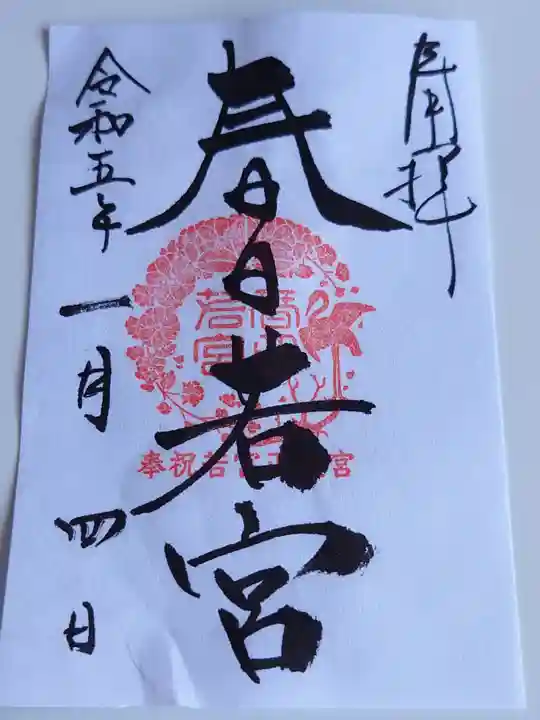 奉拝
春日若宮
奉祝若宮正遷宮
令和五年一月四日